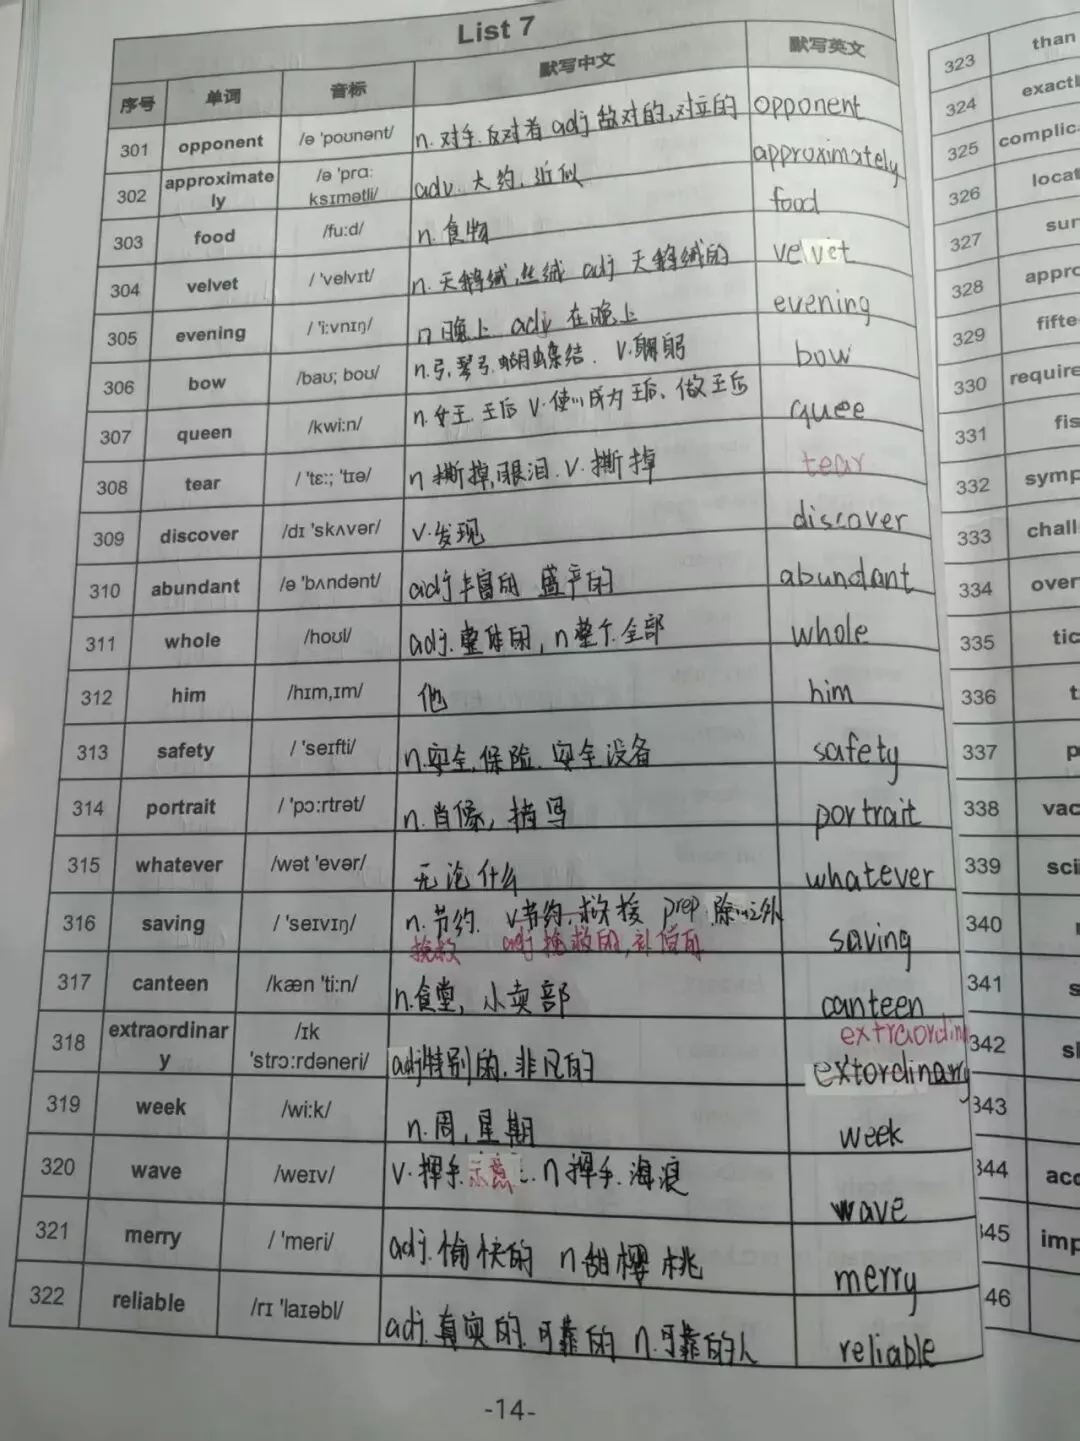 List 7
序号 单词 音标 默写中文 默写英文
301 opponent /ə 'poʊnənt/ n. 对手.反对者 adj 敌对的,对立的 opponent
302 approximately /ə 'prɑːksɪmətli/ adv. 大约、近似 approximately
303 food /fuːd/ n. 食物 food
304 velvet / 'velvɪt/ n. 天鹅绒,丝绒 adj 天鹅绒的 velvet
305 evening / 'iːvnɪŋ/ n 晚上 adj 在晚上 evening
306 bow /baʊ; boʊ/ n.弓,琴弓.蝴蝶结. v.鞠躬 bow
307 queen /kwiːn/ n.女王.王后 v.使…成为王后、做王后 quee
308 tear / 'tɛː; 'tɪə/ n 撕掉,眼泪. v.撕掉 tear
309 discover /dɪ 'skʌvər/ v.发现 discover
310 abundant /ə 'bʌndənt/ adj 丰富的 盛产的 abundant
311 whole /hoʊl/ adj.整体的, n 整个.全部 whole
312 him /hɪm,ɪm/ 他 him
313 safety / 'seɪfti/ n.安全,保险.安全设备 safety
314 portrait / 'pɔːrtrət/ n.肖像,描写 portrait
315 whatever /wət 'evər/ 无论什么 whatever
316 saving / 'seɪvɪŋ/ n.节约. v节约.求援 prep.除…之外 saving
挽救 adj 挽救的,补偿的
317 canteen /kæn 'tiːn/ n.食堂,小卖部 canteen
extraordin
318 extraordinary /ɪk 'strɔːrdəneri/ adj特别的.非凡的 extordinary
319 week /wiːk/ n.周,星期 week
320 wave /weɪv/ v.挥手.示意 n挥手.海浪 wave
321 merry / 'meri/ adj.愉快的 n甜樱桃 merry
322 reliable /rɪ 'laɪəbl/ adj.真实的.可靠的 n.可靠的人 reliable
-14-
323 than
324 exactl
325 complica
326 locat
327 sur
328 appro
329 fifte
330 require
331 fis
332 symp
333 chall
334 over
335 tic
336 t
337 p
338 vac
339 sci
340
341 s
342 sl
343
344 acc
345 imp
46